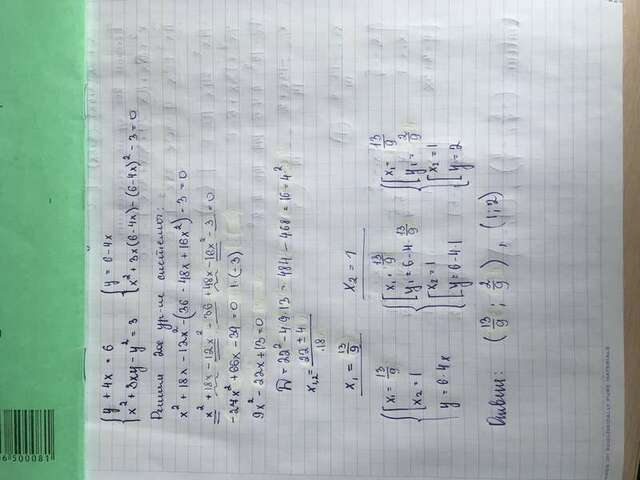 {y + 4x = 6 {y = 6-4x
{x² + 3xy - y² = 3 {x² + 3x(6-4x) - (6-4x)² - 3 = 0
Решим 2ое ур-ие системы:
x² + 18x - 12x² - (36 - 48x + 16x²) - 3 = 0
x² + 18x - 12x² - 36 + 48x - 16x² - 3 = 0
-27x² + 66x - 39 = 0 | :(-3)
9x² - 22x + 13 = 0
D = 22² - 4·9·13 = 484 - 468 = 16 = 4²
x₁,₂ = (22 ± 4)/18
x₁ = 13/9 x₂ = 1
{[x₁ = 13/9 {[x₁ = 13/9 {[x₁ = 13/9
{[x₂ = 1 {[y₁ = 6-4·13/9 {[y₁ = 2/9
{y = 6-4x {[x₂ = 1 {[x₂ = 1
{[y = 6-4·1 {[y = 2
Ответ: (13/9 ; 2/9), (1; 2)
6 500081